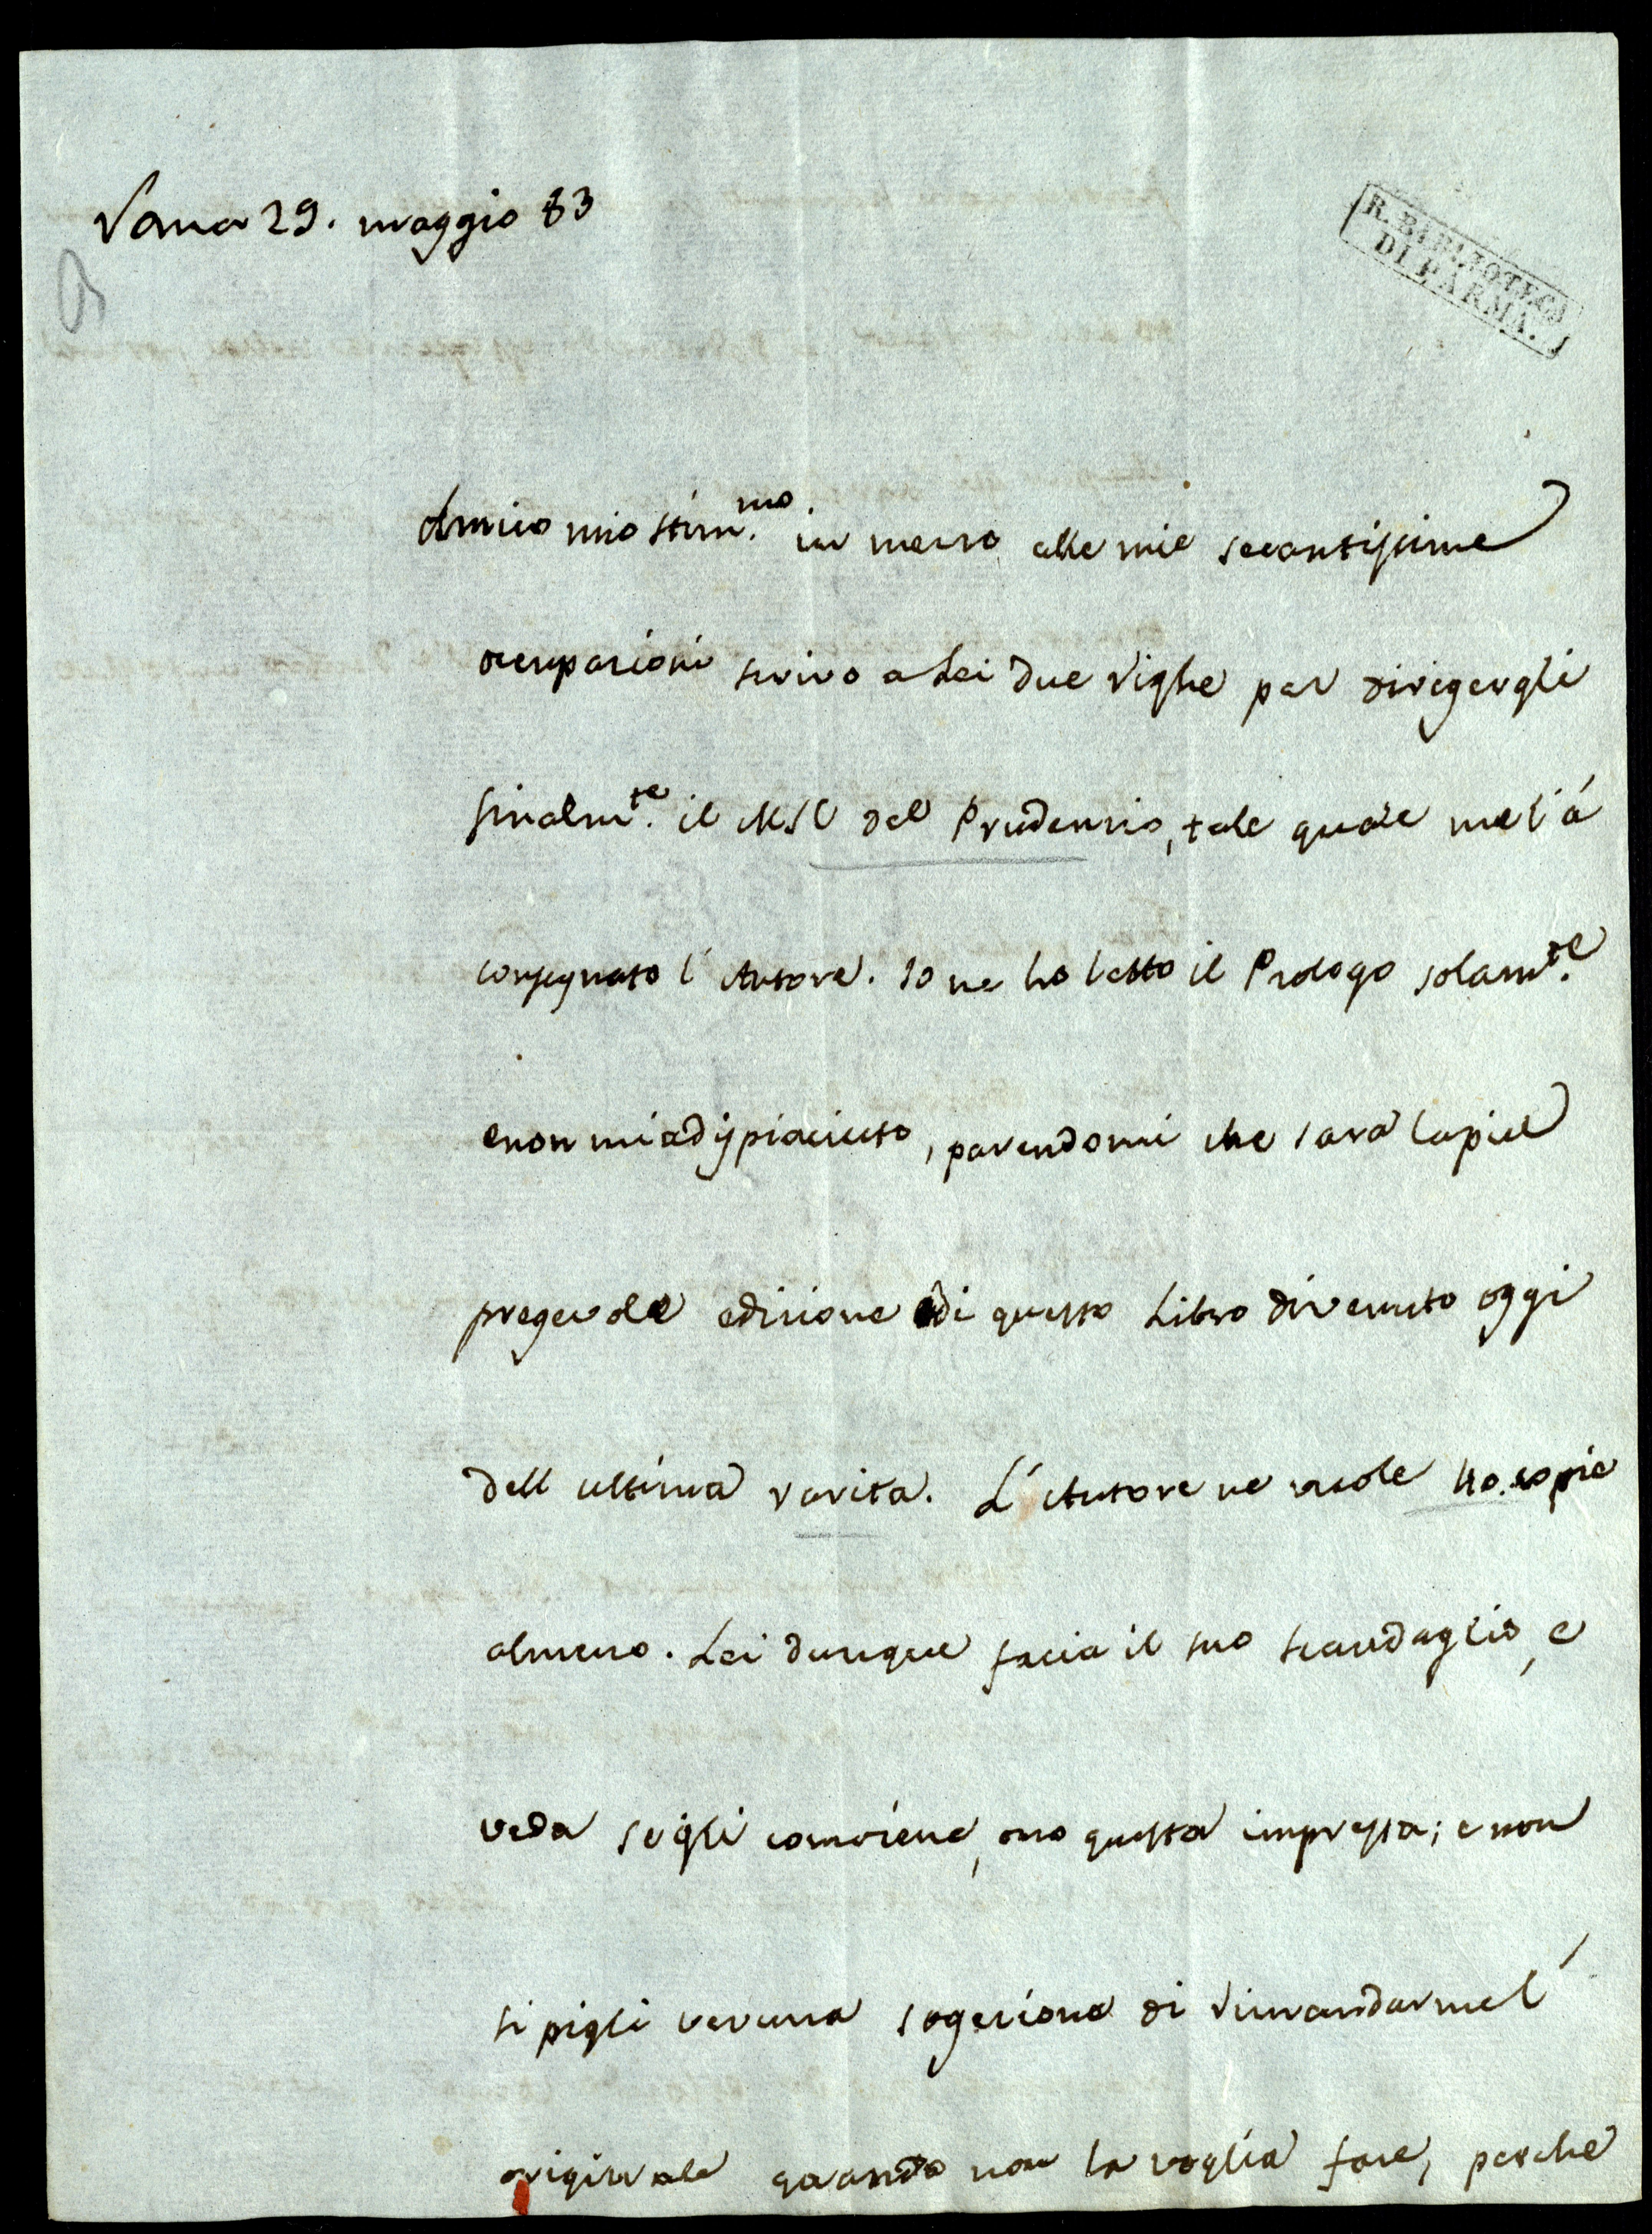 Roma 29. maggio 83
R. BIBLIOTECA
DI PARMA.
Amico mio stim.mo in mezzo alle mie secantissime
ocupazioni scrivo a Lei due righe per dirigergli
finalm.te il MSC del Prudenzio, tale quale me l'á
consegnato l'Autore. Io ne ho letto il Prologo solam.te
e non mi a dispiaciuto, parendomi che sarà la piu
pregevole edizione di questo Libro divenuto oggi
dell ultima rarita. L'Autore ne vuole 40. copie
almeno. Lei dunque facia il suo scandaglio, e
veda se gli conviene, o no questa impressa; e non
si pigli veruna sogezione di rimandarmel'
originale quando non la voglia fare, perche